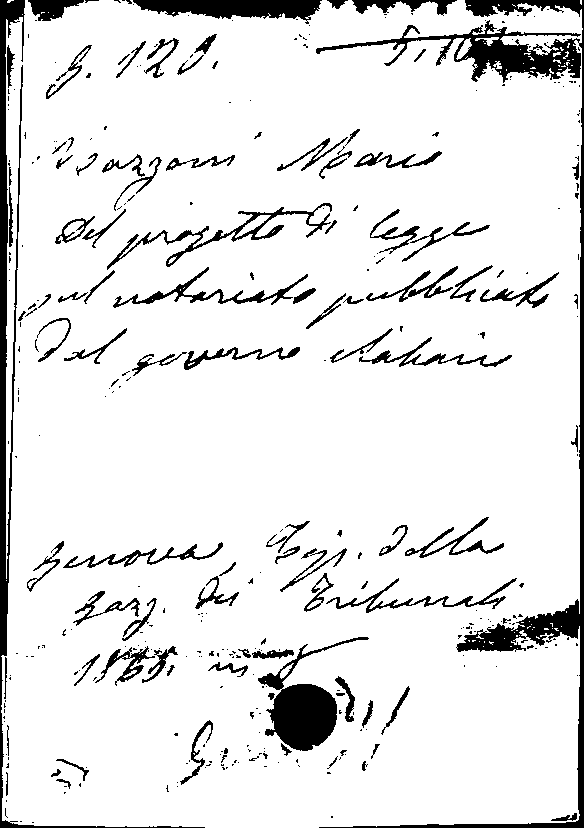 G. 120.
Mario
Del progetto di legge
sul notariato pubblicato
dal governo italiano
Genova, Tip. della
Gazz. dei Tribunali
1865. in 8